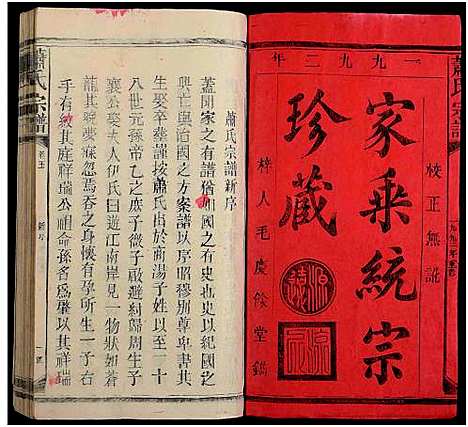 一九九二年
校正無訛
家乘統宗
珍藏
梓人毛慶餘堂鐫
蕭氏宗譜
蕭氏宗譜新序
蓋聞家之有譜猶如國之有史也史以紀國之
興亡與治國之方案譜以序昭穆別尊卑書其
生娶與歿按蕭氏出於商湯子姓以至一十
八世元孫帝乙之庶子微子啟避紂歸周生子
襄公娶夫人伊氏曰遊江南岸見一物狀如蒼
龍其夢寐忽焉吞之身懷有孕所生一子
手有紋其庭祥瑞公祖命孫名為肇以其祥瑞
蕭氏宗譜
新序